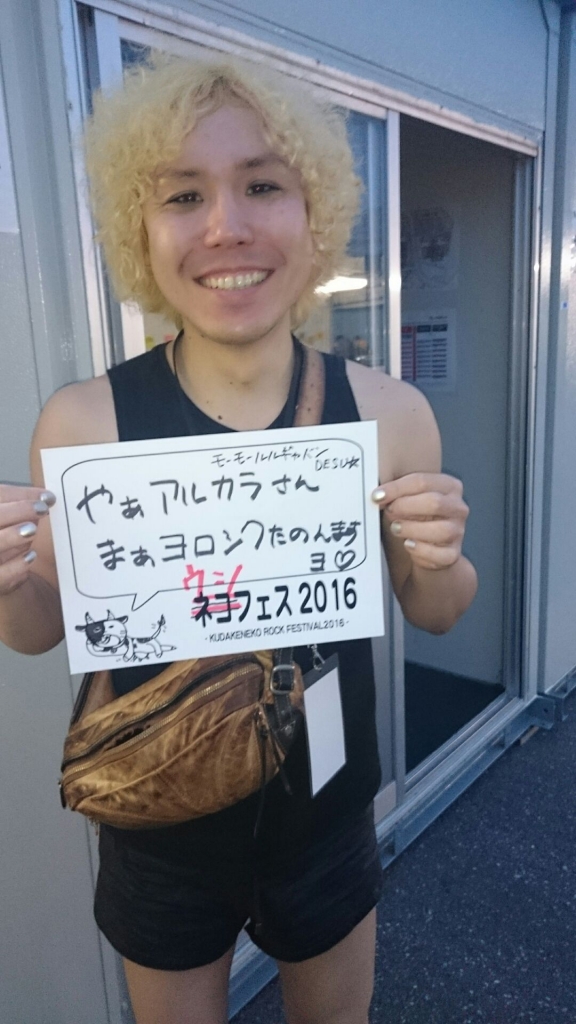 モーモールルギャバン
DESU☆
やぁ アルカラさん
まぁヨロシクたのんます
ヨ♡
ウシ
ネコフェス2016
-KUDAKENEKO ROCK FESTIVAL2016-